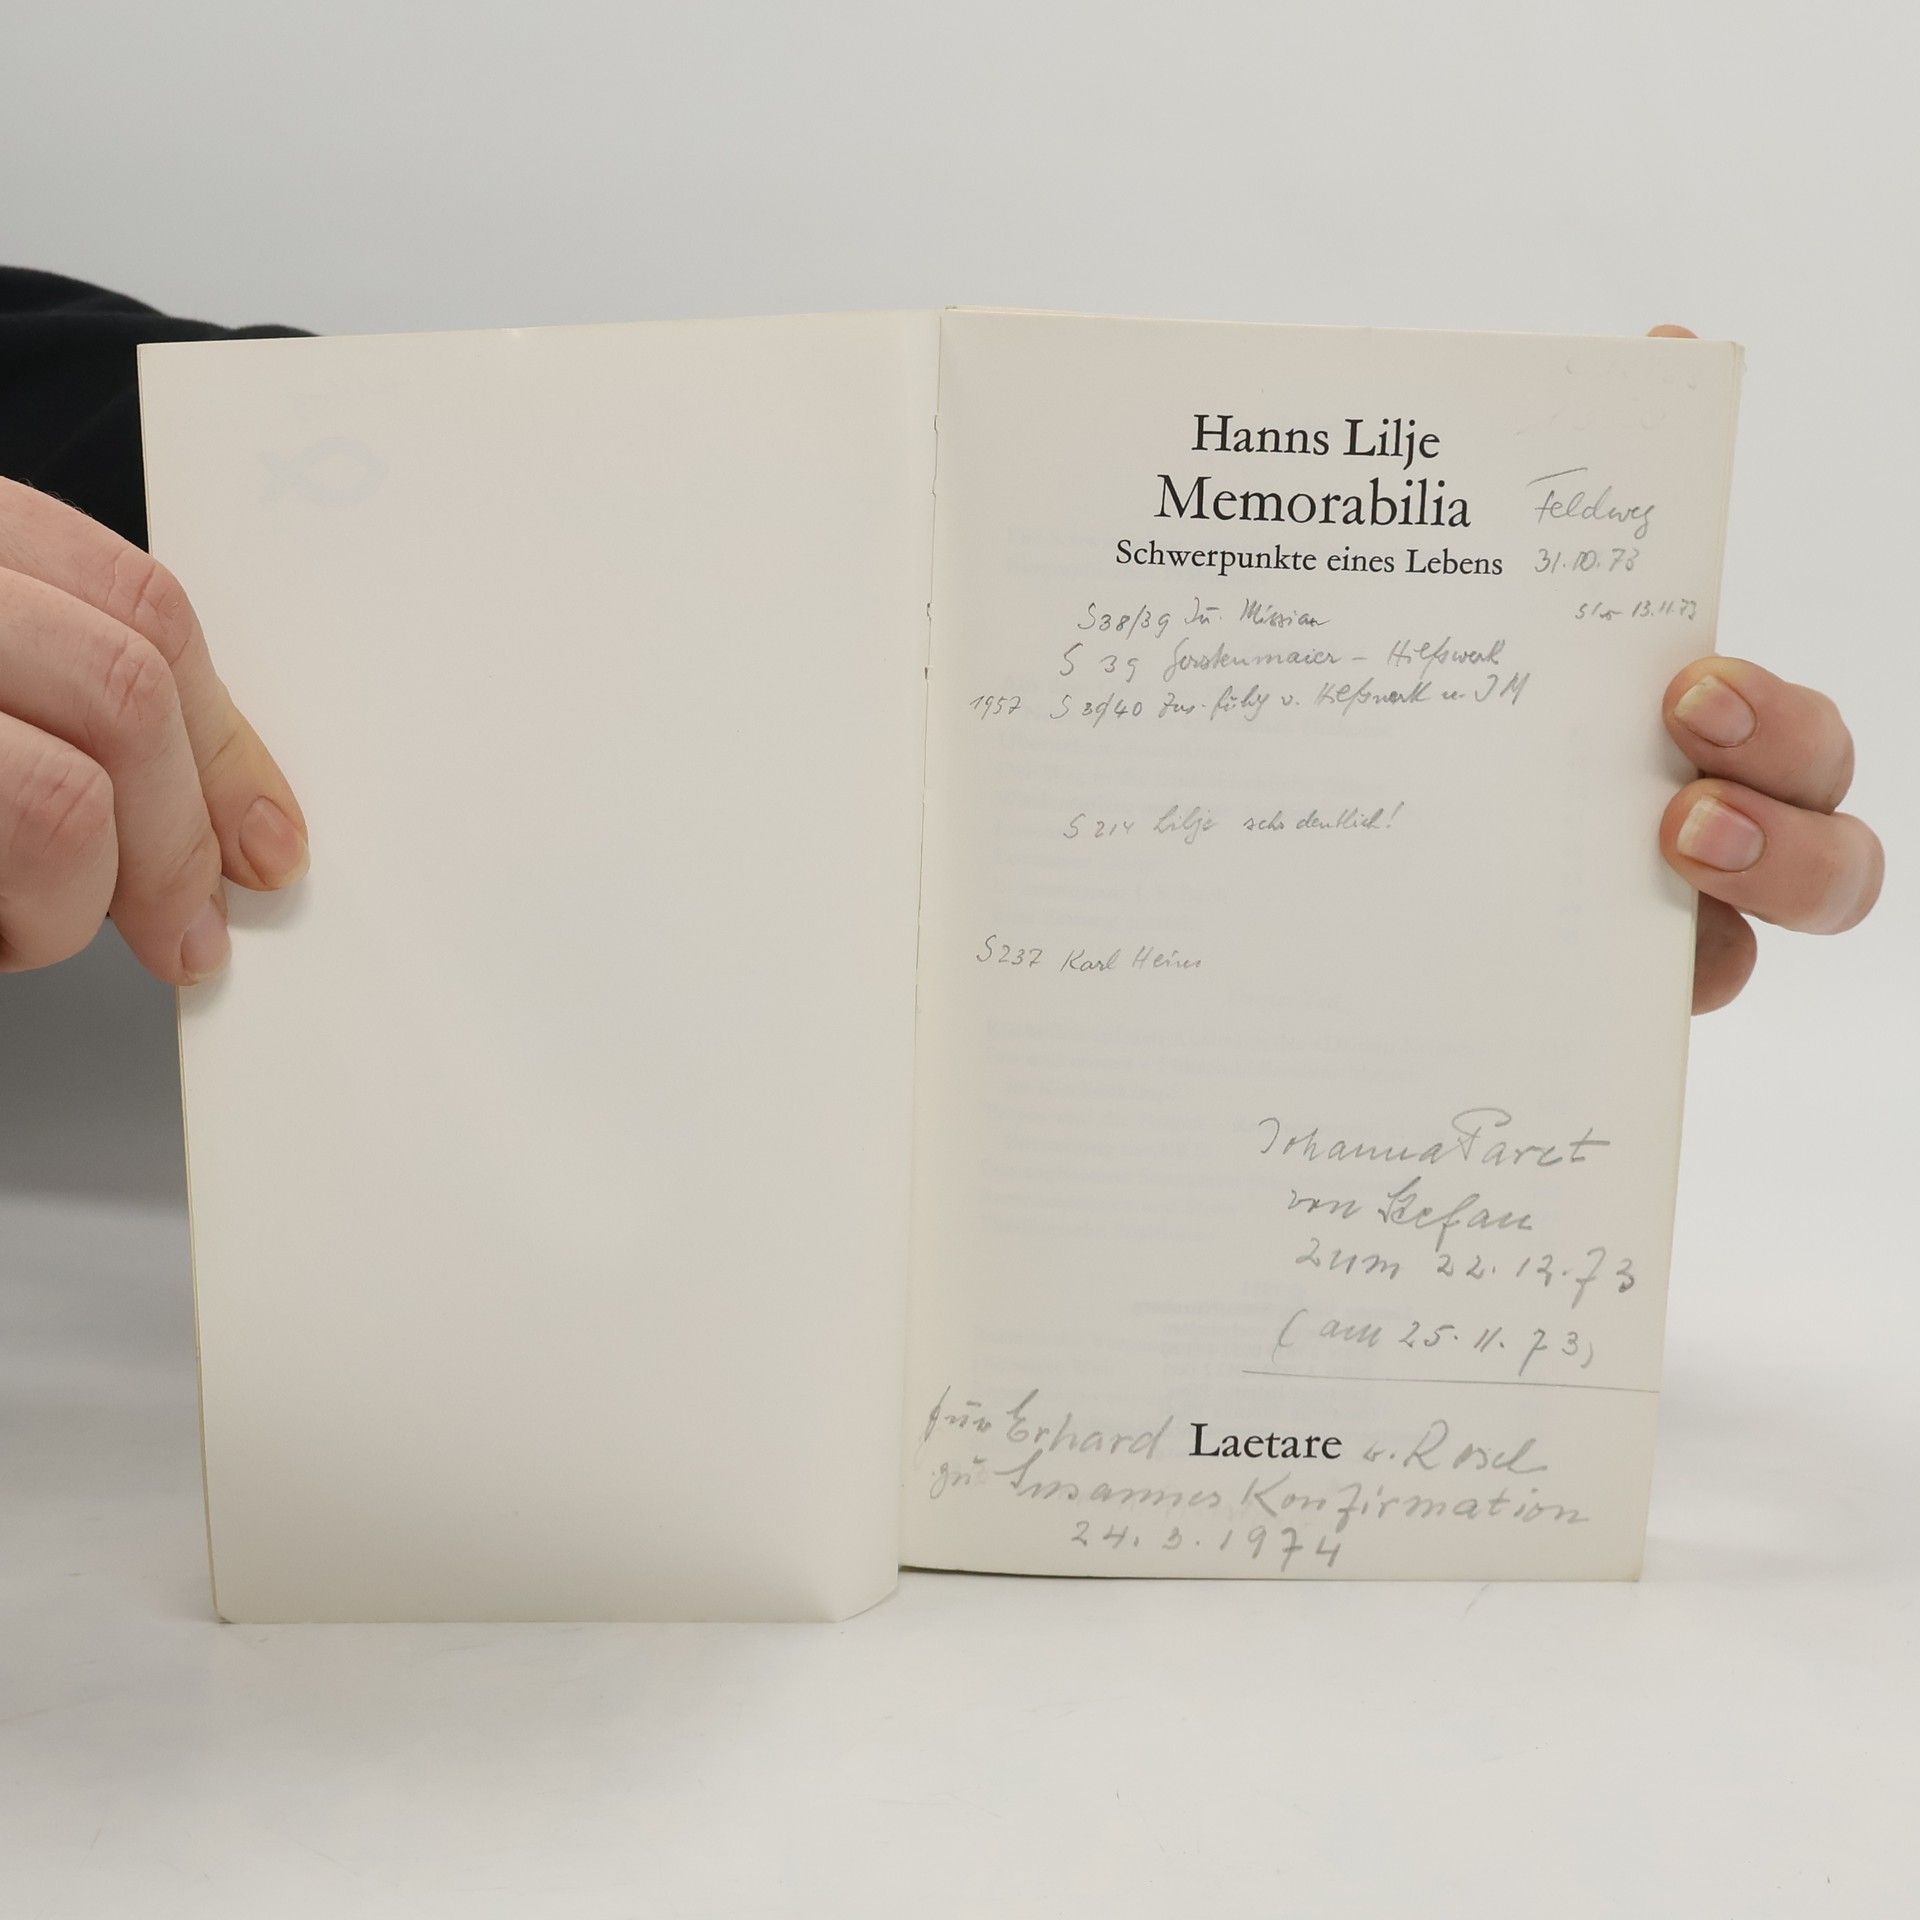 Hanns Lilje
Memorabilia
Feldweg
Schwerpunkte eines Lebens
31.10.73
13.11.73
S 38/39 In. Mission
S 39 Gerstenmaier – Hilfswerk
1957 S 39/40 Zus.führg v. Hilfswerk u. IM
S 214 Lilje sehr deutlich!
S 237 Karl Heim
Johanna Paret
von Stefan
zum 22.12.73
(am 25.11.73)
für Erhard
Laetare
u. Rosel
zu Susannes Konfirmation
24.3.1974